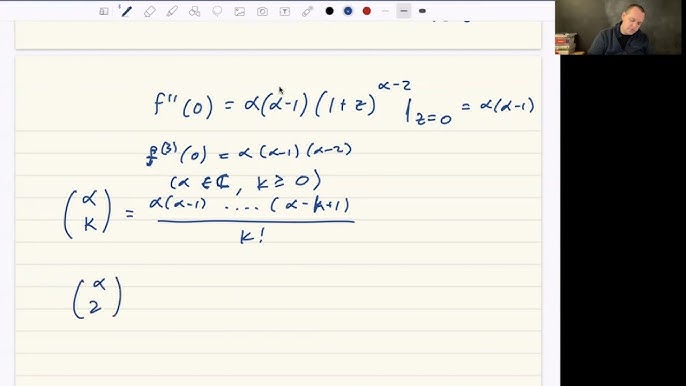 f''(0) = α(α-1)(1+z)^{α-2} |_{z=0} = α(α-1)
f^{(3)}(0) = α(α-1)(α-2)
(α ∈ ℂ, k ≥ 0)
\binom{α}{k} = \frac{α(α-1) .... (α-k+1)}{k!}
\binom{α}{2}